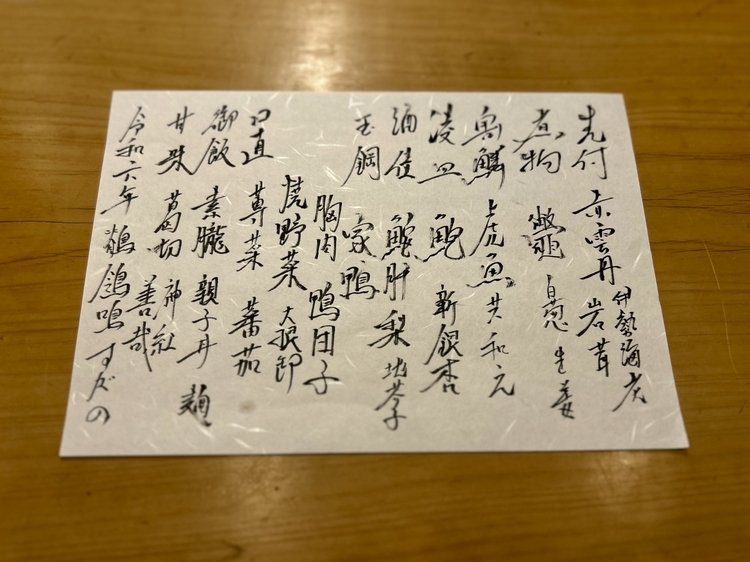 伊勢海老
先付 赤雲丹 岩茸
煮物 鼈 白葱 生姜
魚鱗 虎魚 共和え
凌皿 鮑 新銀杏
鮑肝 梨
玉鋼 家鴨
胸肉 鴨団子
焼野菜 大根卸
口直 蓴菜 蕃茄
御飯 素朧 親子丼
甘味 葛切 神紅
善哉
令和六年 鶺鴒鳴 すだの